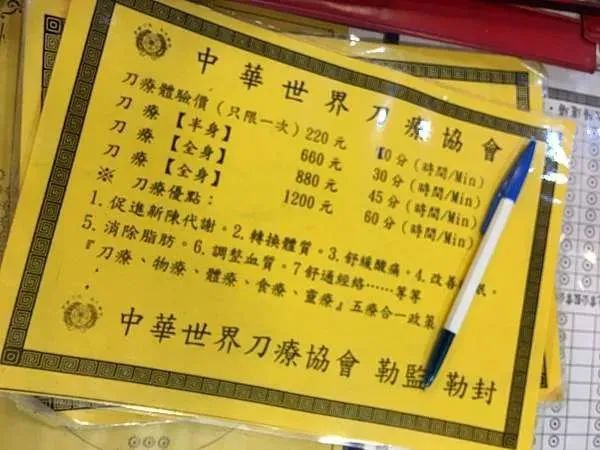 中華世界刀療協會
刀療體驗價(只限一次)220元 10分(時間/Min)
刀療【半身】 660元 30分(時間/Min)
刀療【全身】 880元 45分(時間/Min)
刀療【全身】 1200元 60分(時間/Min)
※ 刀療優點:
1.促進新陳代謝。2.轉換體質。3.舒緩酸痛。4.改善 眠。
5.消除脂肪。6.調整血質。7舒通經絡……等等
『刀療、物療、體療、食療、靈療』五療合一政策
中華世界刀療協會 勒監 勒封